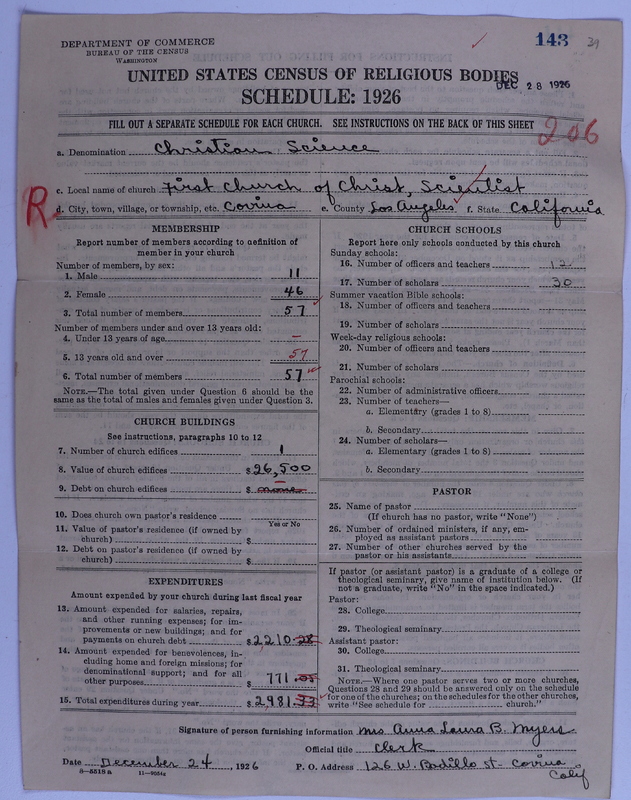 143 39
DEPARTMENT OF COMMERCE
BUREAU OF THE CENSUS
WASHINGTON
UNITED STATES CENSUS OF RELIGIOUS BODIES
DEC 28 1926
SCHEDULE: 1926
FILL OUT A SEPARATE SCHEDULE FOR EACH CHURCH. SEE INSTRUCTIONS ON THE BACK OF THIS SHEET
206
a. Denomination Christian Science
c. Local name of church First Church of Christ, Scientist
R d. City, town, village, or township, etc. Covina e. County Los Angeles f. State California
MEMBERSHIP
Report number of members according to definition of
member in your church
Number of members, by sex:
1. Male 11
2. Female 46
3. Total number of members 57
Number of members under and over 13 years old:
4. Under 13 years of age —
5. 13 years old and over 57
6. Total number of members 57
NOTE.—The total given under Question 6 should be
same as the total of males and females given under Question 3.
CHURCH BUILDINGS
See instructions, paragraphs 10 to 12
7. Number of church edifices 1
8. Value of church edifices $26,500
9. Debt on church edifices $ none
10. Does church own pastor's residence
Yes or No
11. Value of pastor's residence (if owned by
church) $
12. Debt on pastor's residence (if owned by
church) $
EXPENDITURES
Amount expended by your church during last fiscal year
13. Amount expended for salaries, repairs,
and other running expenses; for im-
provements or new buildings; and for
payments on church debt $2,210.28
14. Amount expended for benevolences, in-
cluding home and foreign missions; for
denominational support; and for all
other purposes $ 771.05
15. Total expenditures during year $2,981.33
CHURCH SCHOOLS
Report here only schools conducted by this church
Sunday schools:
16. Number of officers and teachers 12
17. Number of scholars 30
Summer vacation Bible schools:
18. Number of officers and teachers
19. Number of scholars
Week-day religious schools:
20. Number of officers and teachers
21. Number of scholars
Parochial schools:
22. Number of administrative officers
23. Number of teachers—
a. Elementary (grades 1 to 8)
b. Secondary
24. Number of scholars—
a. Elementary (grades 1 to 8)
b. Secondary
PASTOR
25. Name of pastor
(If church has no pastor, write "None")
26. Number of ordained ministers, if any, em-
ployed as assistant pastors
27. Number of other churches served by the
pastor or his assistants
If pastor (or assistant pastor) is a graduate of a college or
theological seminary, give name of institution below. (If
not a graduate, write "No" in the space indicated.)
Pastor:
28. College
29. Theological seminary
Assistant pastor:
30. College
31. Theological seminary
NOTE.—Where one pastor serves two or more churches,
Questions 28 and 29 should be answered only on the schedule
for one of the churches; on the schedules for the other churches,
write "See schedule for church."
Signature of person furnishing information Mrs Anna Laura B. Myers
Official title Clerk
Date December 24, 1926 P. O. Address 126 W. Badillo St. Covina
Calif
8—5518 a 11—9054a